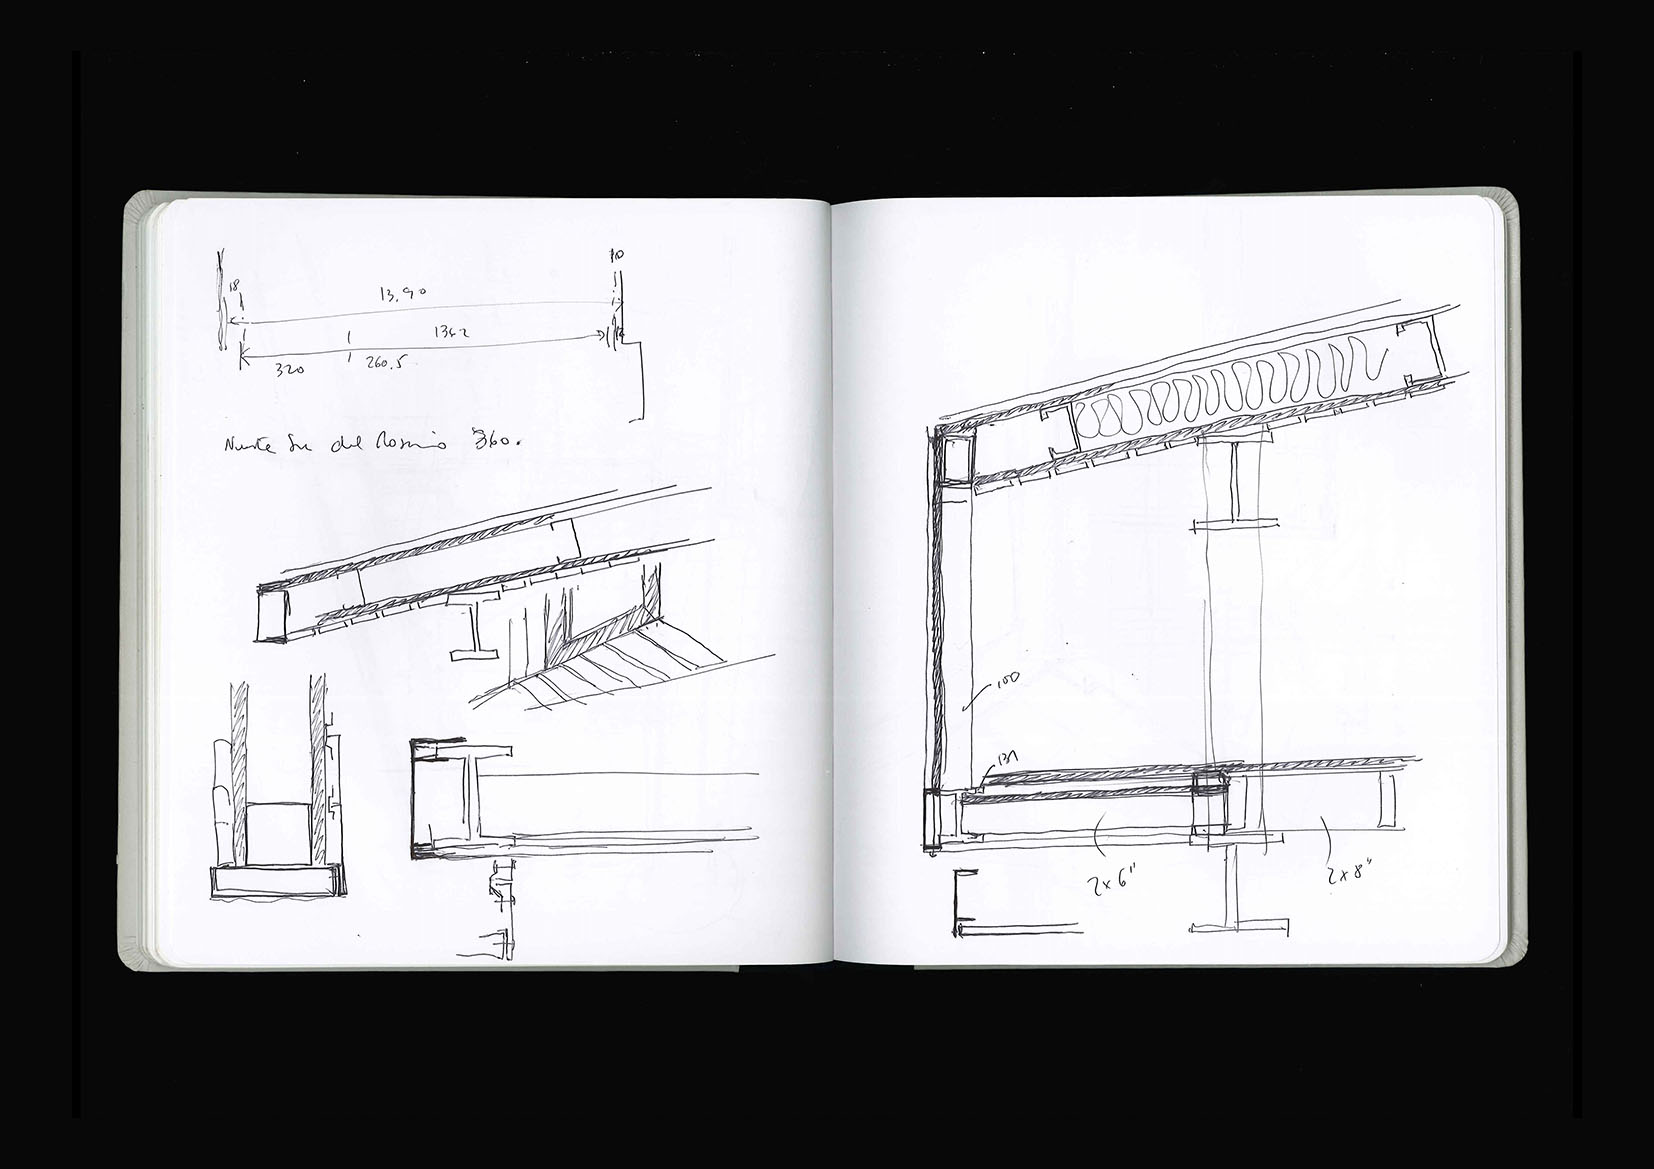 18
10
13.90
1362
320
260.5
del Rosario 360.
100
131
2x6"
2x8"